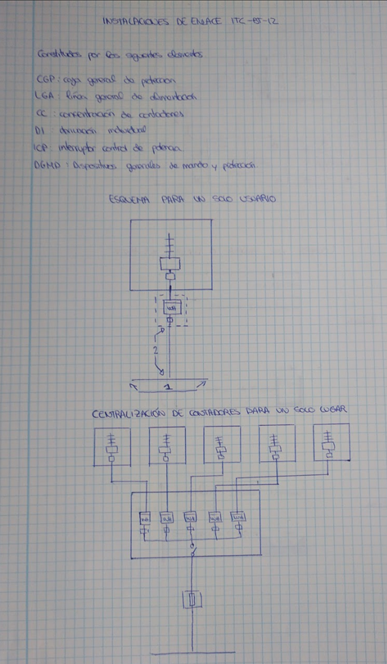 INSTALACIONES DE ENLACE ITC-BT-12
Constituidas por los siguientes elementos
CGP: caja general de protección
LGA: línea general de alimentación
CC concentración de contadores
DI derivación individual
ICP interruptor control de potencia
DGMP: Dispositivos generales de mando y protección
ESQUEMA PARA UN SOLO USUARIO
2
1
CENTRALIZACIÓN DE CONTADORES PARA UN SOLO LUGAR